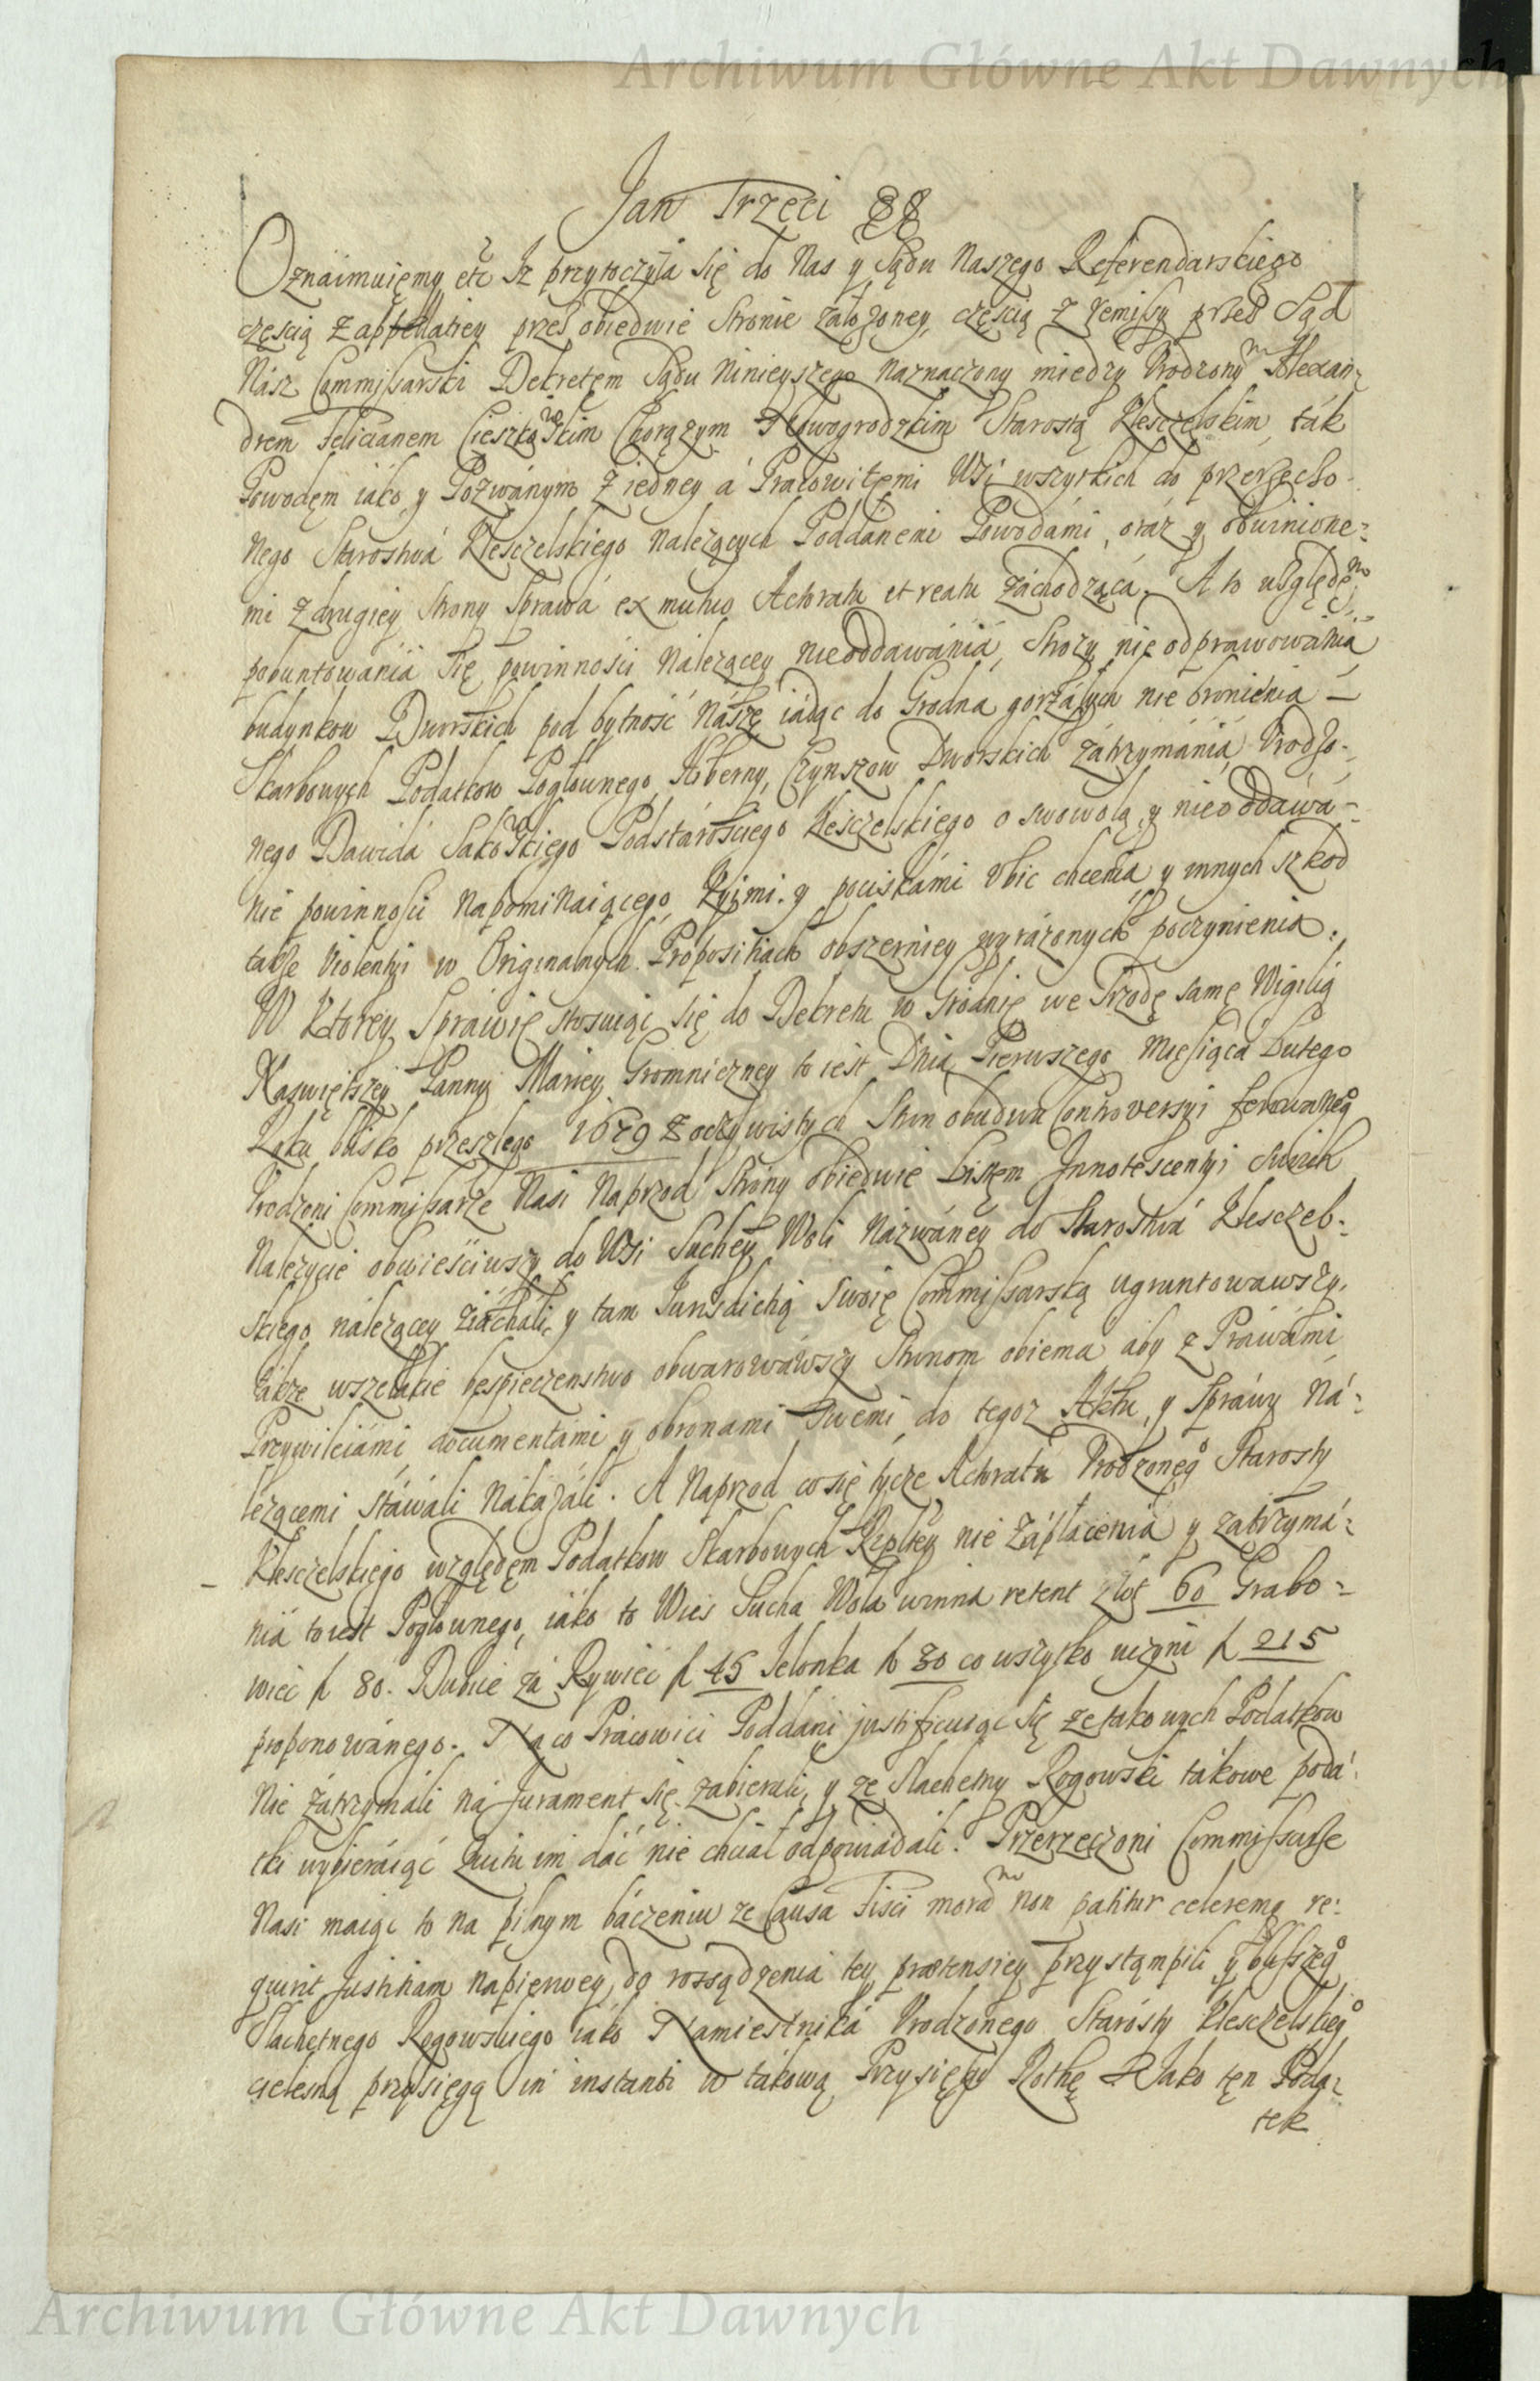 Archiwum Główne Akt Dawnych
Jan Trzeci
Oznaimuięmy etc Iz przytoczyła się do Nas y Sądu Naszego Referendarskiego
częscią z appellatiey przez obiedwie Stronie załozoney, częscią z remissy przed Sąd
Nász Commissarski Dekretęm Sądu Ninieyszego Naznaczony miedzy Vrodzonym Alexan:
drem Felicianem Cieszkowskim Chorązym Nowogrodzkim Starostą Kleszczelskim ták
Powodęm iáko y Pozwánym z iedney á Pracowitemi Wsi wszytkich do przerzeczo-
nego Starostwá Klesczelskiego należących Poddánemi Powodámi, oraz y obwinione:
mi z drugiey Strony Spráwá ex mutuo Actoratu et reatu záchodząca. A to względem
pobuntowániá się powinności Należącey nieoddawániá, Stroży nie odprawowániá
budynkow Dworskich pod bytność Nászę iádąc do Grodna gorżáłych nie bronieniá –
Skarbowych Podatkow Pogłownego, Hiberny, Czynszow Dworskich zátrzymániá, Vrodzo-
nego Dawidá Sakowskiego Podstárościego Kleszczelskiego o swowolą y nieoddawá-
nie powinnosci Napominaiącego Kyimi y pociskámi Vbic chceniá y innych szkod
także Violentyi w Originalnych Propositiach obszerniey wyráżonych poczynienia.
W Ktorey Spráwię stosuiąc się do Dekretu w Grodnie we Srzodę samę Wigilią
Naswiętszey Panny Mariey Gromniczney to iest Dniá Pierwszego Miesiącá Lutego
Roku blisko przeszłego 1679 z oczywistych Stron obudwu Controversyi ferowanego
Vrodzoni Commissarze Nasi Naprzod Strony obiedwie Listem Innotescentyi swoich
Należycie obwieściwszy do Wsi Suchey Woli Názwáney do Starostwá Klesczel:
skiego náleżącey ziácháli, y tam Iurisdictią swoię Commissarską ugruntowawszy,
tákże wszelákie bespieczenstwo obwarowáwszy Stronom obiema aby z Práwámi
Przywileiámi, documentámi y obronami swemi do tegoz Aktu, y Spráwy Ná:
leżącemi stáwáli Nákazáli. A Naprzod co się tycze Actoratu Vrodzonego Starosty
Klesczelskiego względęm Podatkow Skarbowych Rzpltey nie zápłaceniá y zatrzymá:
niá to iest Pogłownego, iáko to Wieś Sucha Wola winná retent złot 60 Grabo:
wiec f 80. Dubicze zá Rywiec f 45 Ielonka f 30 co wszytko uczyni f 215
proponowánego. Ná co Prácowici Poddáni justificuiąc się że takowych Podatkow
Nie zátrzymáli ná Iurament się zabieráli, y że Slachetny Rogowski tákowe podá:
tki wybieráiąc Kwitu im dáć nie chciał odpowiádali. Przerzeczoni Commissarze
Nasi maiąc to na pilnym báczeniu ze Causa Fisci moram non patitur celerem re:
quirit Iustitiam napierwey do rozsądzenia tey praetensiey przystąmpili y
Slachetnego Rogowskiego iako Namiestniká Vrodzonego Stárosty Klesczelskiego
cielesną przysięgą in instanti w tákową Przysięgi Rothę Iako tęn Podá:
tek
Archiwum Główne Akt Dawnych